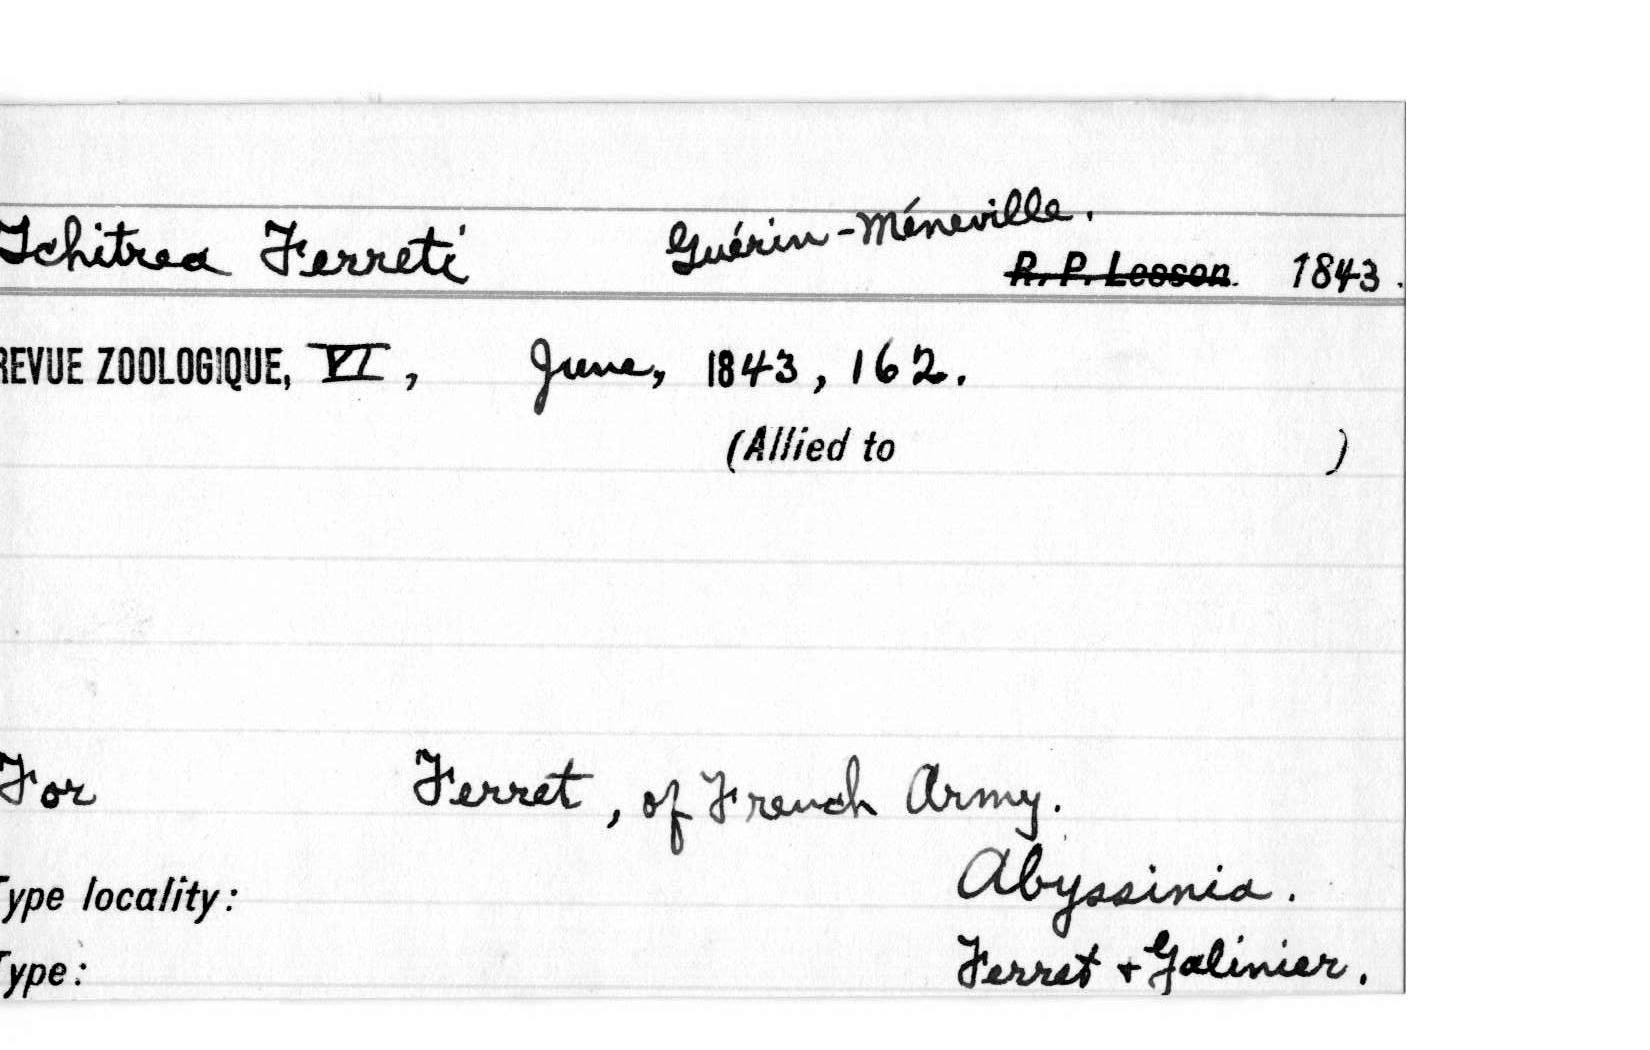 Tchitrea Ferreti Guérin-Méneville.
R. P. Lesson. 1843.
REVUE ZOOLOGIQUE, VI, June, 1843, 162.
(Allied to )
For Ferret, of French Army.
Abyssinia.
Type locality:
Type: Ferret + Galinier.